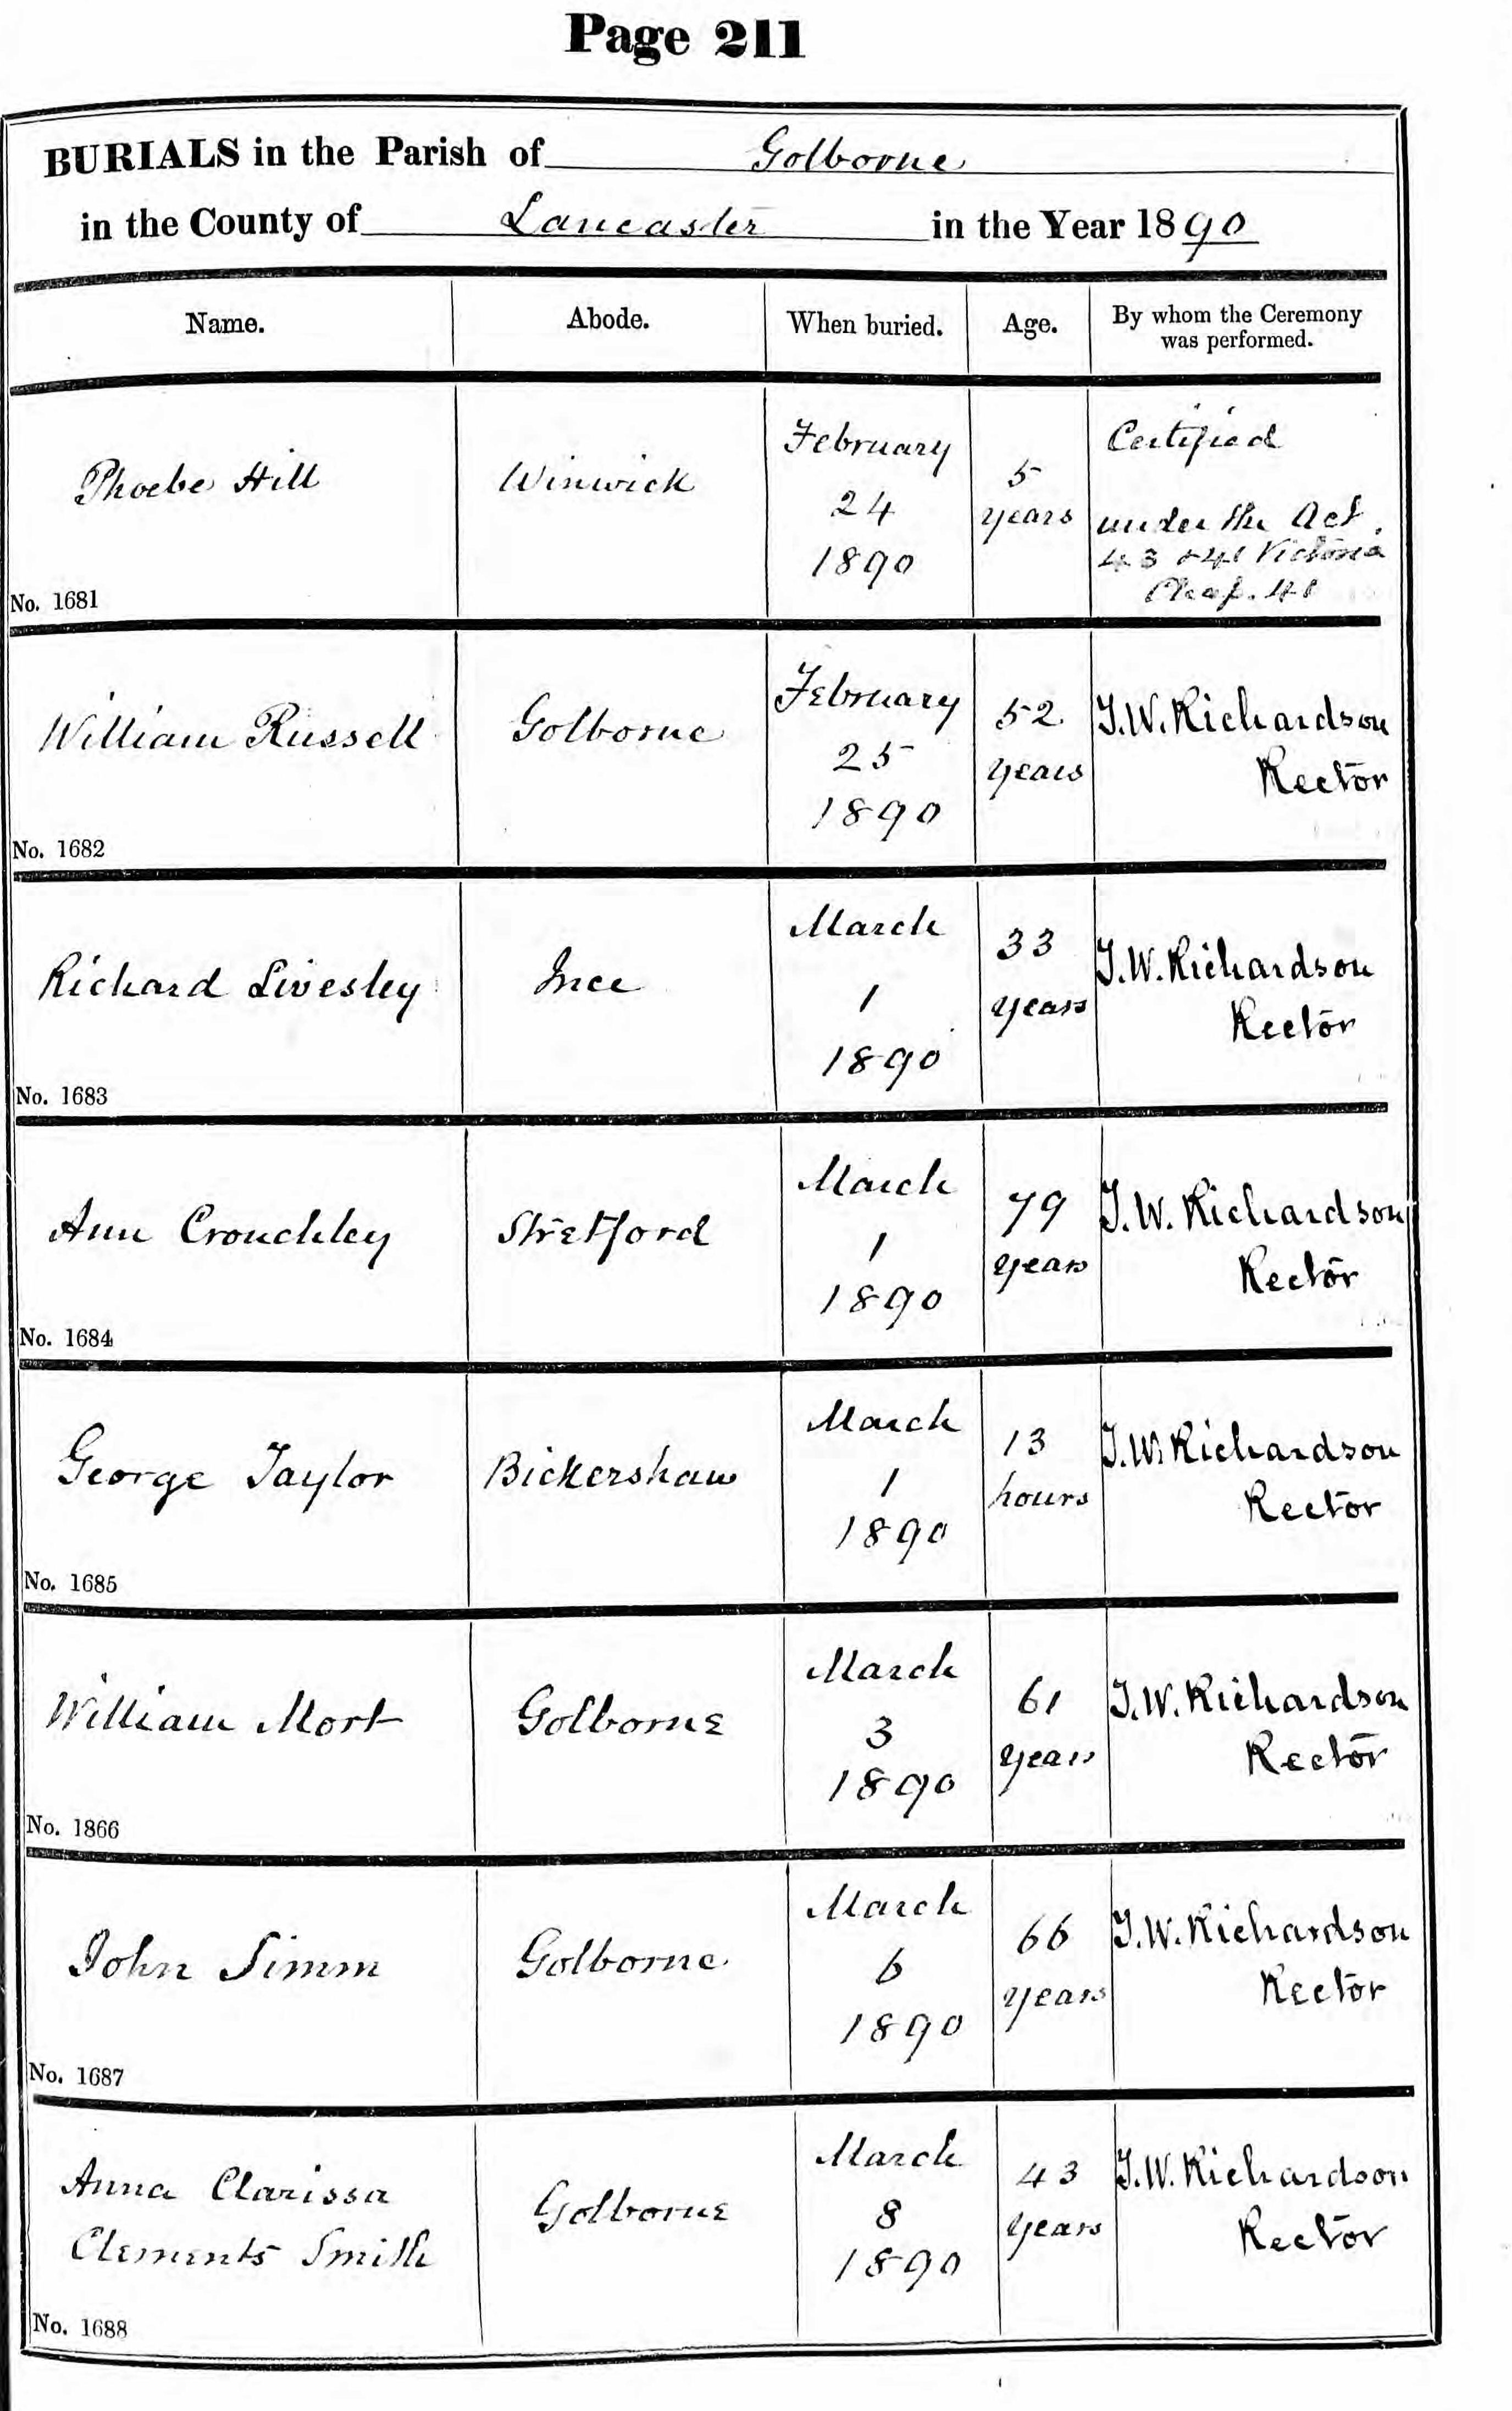 Page 211
BURIALS in the Parish of Golborne
in the County of Lancaster in the Year 1890
Name. Abode. When buried. Age. By whom the Ceremony was performed.
Phoebe Hill Winwick February 24 1890 5 years Certified under the Act 43 & 41 Victoria Chap. 41
No. 1681
William Russell Golborne February 25 1890 52 years T.W. Richardson Rector
No. 1682
Richard Livesley Ince March 1 1890 33 years T.W. Richardson Rector
No. 1683
Ann Crouchley Stretford March 1 1890 79 years T.W. Richardson Rector
No. 1684
George Taylor Bickershaw March 1 1890 13 hours T.W. Richardson Rector
No. 1685
William Mort Golborne March 3 1890 61 years T.W. Richardson Rector
No. 1866
John Simm Golborne March 6 1890 66 years T.W. Richardson Rector
No. 1687
Anna Clarissa Clements Smith Golborne March 8 1890 43 years T.W. Richardson Rector
No. 1688